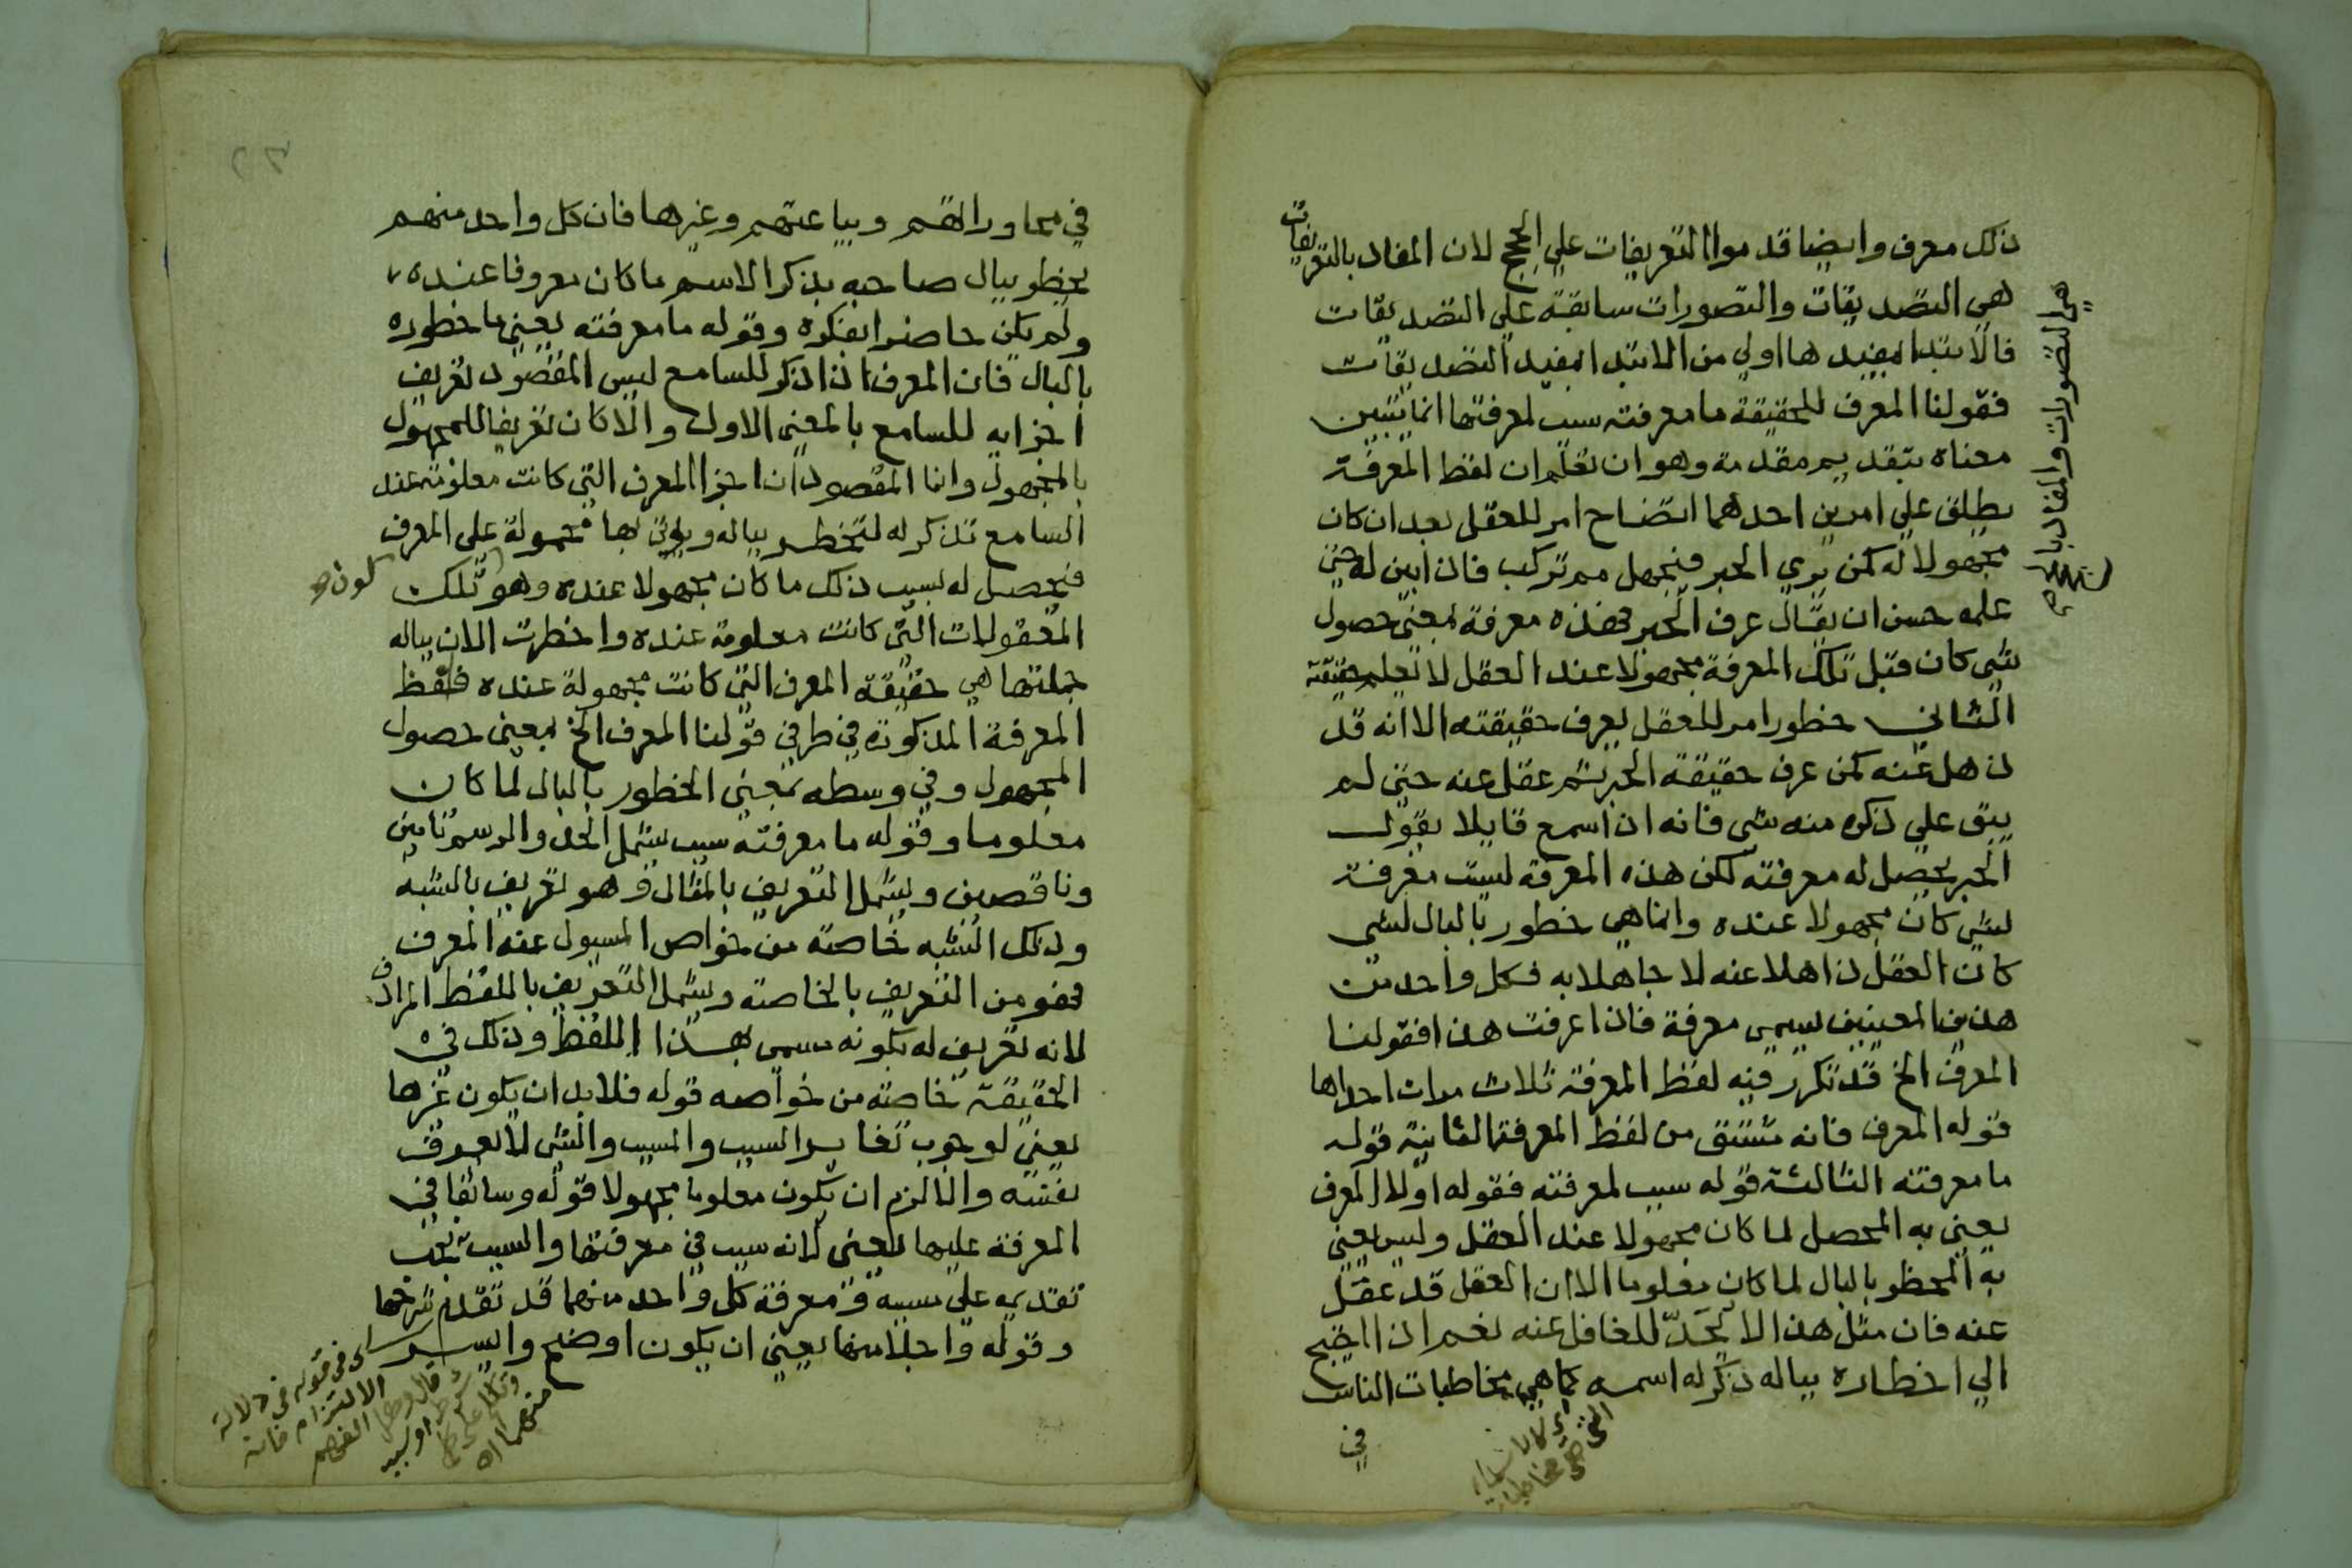 ذلك معرف وايضا قدموا التعريفات علي الحجج لان المفاد بالتعريفات
هي التصديقات والتصورات سابقة علي التصديقات
فالابتدا بمفيدها اولي من الابتدا بمفيد التصديقات
فقولنا المعرف للحقيقة ما معرفته سبب لمعرفتها انما يتبين
معناه بتقديم مقدمة وهو ان تعلم ان لفظ المعرفة
يطلق علي امرين احدهما اتضاح امر للعقل بعد ان كان
مجهولا له كمن يري الحبر فيجهل مم تركب فاذا بين له حتي
علمه حسن ان يقال عرف الحبر فهذه معرفة بمعني حصول
شي كان قبل تلك المعرفة مجهولا عند العقل لا تعلم حقيقته
الثاني خطور امر للعقل يعرف حقيقته الا انه قد
ذهل عنه كمن عرف حقيقة الحبر ثم غفل عنه حتي لم
يبق علي ذكره منه شي فانه اذا سمع قايلا يقول
الحبر يحصل له معرفته لكن هذه المعرفة ليست معرفة
لشي كان مجهولا عنده وانما هي خطور بالبال لشي
كان العقل ذاهلا عنه لا جاهلا به فكل واحد من
هذين المعنيين يسمي معرفة فاذا عرفت هذا فقولنا
المعرف الخ قد تكرر فيه لفظ المعرفة ثلاث مرات احداها
قوله المعرف فانه مشتق من لفظ المعرفة الثانية قوله
ما معرفته الثالثة قوله سبب لمعرفته فقوله اولا المعرف
يعني به المحصل لما كان مجهولا عند العقل وليس يعني
به المخطر بالبال لما كان معلوما الا ان العقل قد غفل
عنه فان مثل هذا لا يحد للغافل عنه نعم اذا احتيج
الي اخطاره بباله ذكر له اسمه كما هي مخاطبات الناس
في
هي التصورات والمفاد بالحجج
في محاوراتهم وبياعتهم وغيرها فان كل واحد منهم
يخطر ببال صاحبه بذكر الاسم ما كان معروفا عنده
ولم يكن حاضرا بفكره وقوله ما معرفته يعني ما خطوره
بالبال فان المعرف اذا ذكر للسامع ليس المقصود تعريف
اجزايه للسامع بالمعني الاول والا كان تعريفا للمجهول
بالمجهول وانما المقصود ان اجزا المعرف التي كانت معلومة عند
السامع تذكر له لتخطر بباله ويؤتي بها محمولة علي المعرف
فيحصل له بسبب ذلك ما كان مجهولا عنده وهو كون تلك
المعقولات التي كانت معلومة عنده واخطرت الان بباله
جملتها هي حقيقة المعرف التي كانت مجهولة عنده فلفظ
المعرفة المذكورة في طرفي قولنا المعرف الخ بمعني حصول
المجهول وفي وسطه بمعني الخطور بالبال لما كان
معلوما وقوله ما معرفته سبب يشمل الحد والرسم تامين
وناقصين ويشمل التعريف بالمثال وهو تعريف بالشبه
وذلك الشبه خاصة من خواص المسيول عنه المعرف
فهو من التعريف بالخاصة ويشمل التعريف باللفظ المرادف
لانه تعريف له بكونه يسمي بهذا اللفظ وذلك في
الحقيقة خاصة من خواصه قوله فلا بد ان يكون غيرها
يعني لوجوب تغاير السبب والمسبب والشي لا يعرف
نفسه والا لزم ان يكون معلوما مجهولا قوله وسابقا في
المعرفة عليها يعني لانه سبب في معرفتها والسبب يجب
تقديمه علي مسببه ومعرفة كل واحد منهما قد تقدم شرحها
وقوله واجلا منها يعني ان يكون اوضح